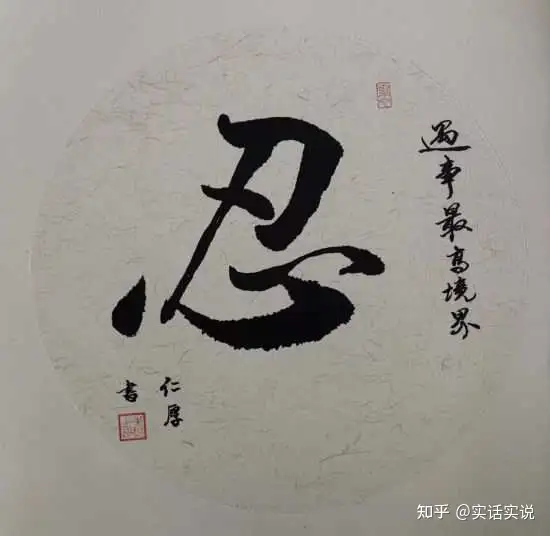 遇事最高境界
忍
仁厚
书
知乎 @实话实说